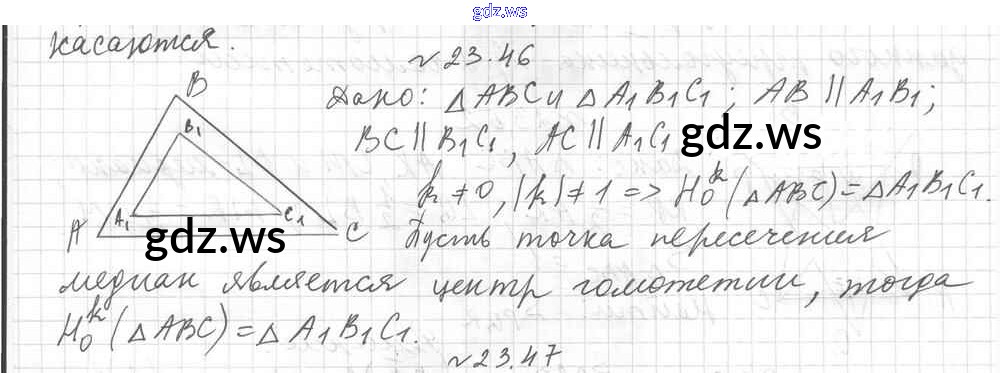 gdz.ws
касаются.
№23.46
B
Дано: △ABC и △A₁B₁C₁; AB ∥ A₁B₁;
B₁
BC ∥ B₁C₁, AC ∥ A₁C₁ gdz.ws
k ≠ 0, |k| ≠ 1 => H₀ᵏ(△ABC) = △A₁B₁C₁.
A A₁ gdz.ws C₁ C Пусть точка пересечения
медиан является центр гомотетии, тогда
H₀ᵏ(△ABC) = △A₁B₁C₁.
№23.47